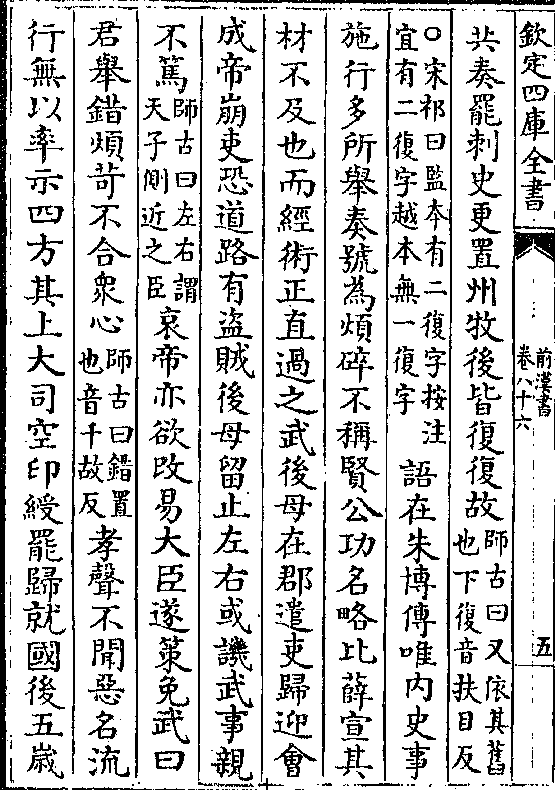 欽定四庫全書
前漢書
卷八十六
五
共奏罷刺史更置州牧後皆復復故師古曰又依其舊
也下復音扶目反
○宋祁曰監本有二復字按注
宜有二復字越本無一復字
語在朱博傳唯内史事
施行多所舉奏號為煩碎不稱賢公功名略比薛宣其
材不及也而經術正直過之武後母在郡遣吏歸迎會
成帝崩吏恐道路有盜賊後母留止左右或譏武事親
不篤師古曰左右謂
天子側近之臣
哀帝亦欲改易大臣遂策免武曰
君舉錯煩苛不合衆心師古曰錯置
也音千故反
孝聲不聞惡名流
行無以率示四方其上大司空印綬罷歸就國後五歲